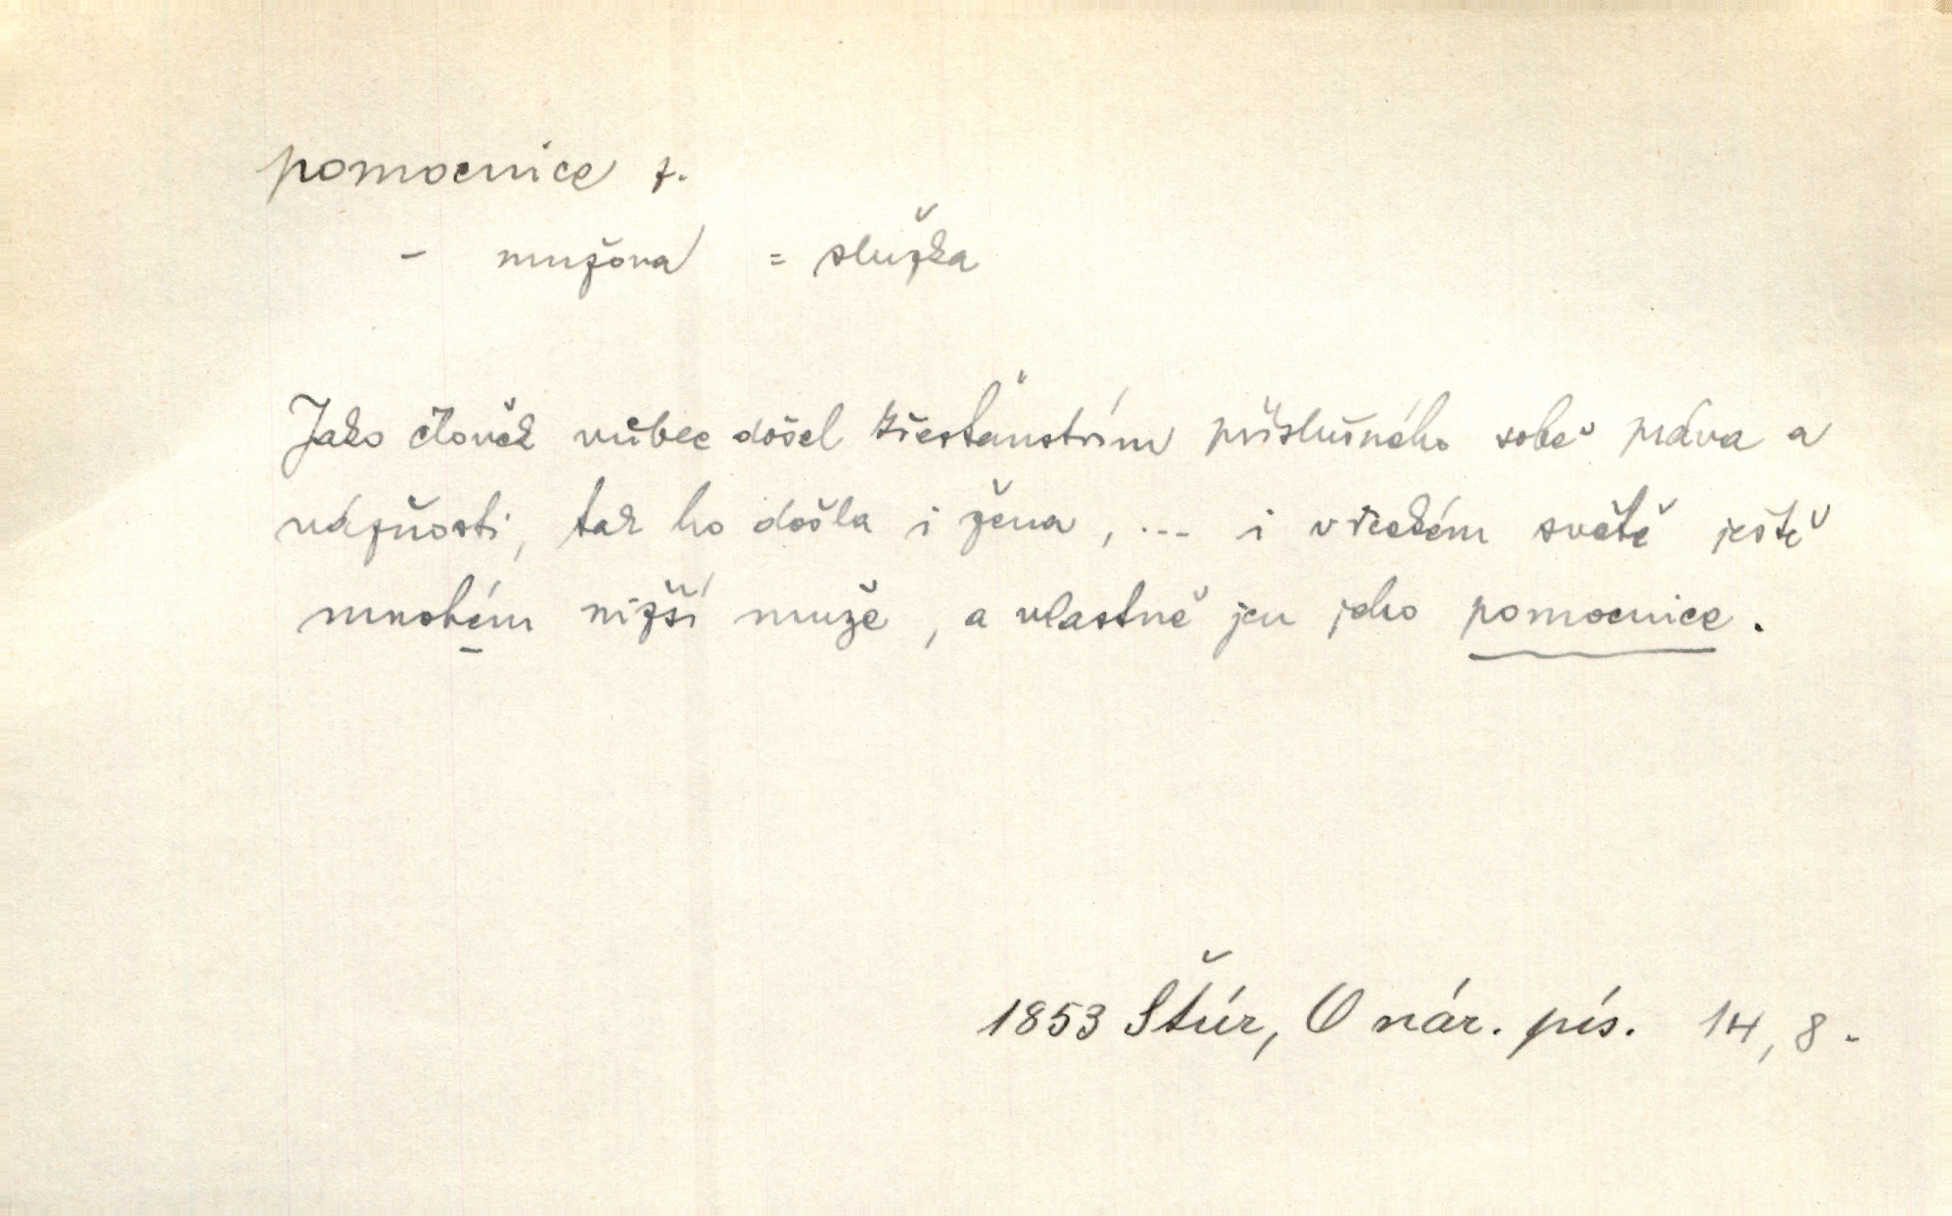 pomocnice f.
- mužova = služka
Jako člověk vůbec došel křesťanstvím příslušného sobě práva a
vážnosti, tak ho došla i žena, ... i v řeckém světě ještě
mnohém nižší muže, a vlastně jen jeho pomocnice.
1853 Štúr, O nár. pís. 14, 8.